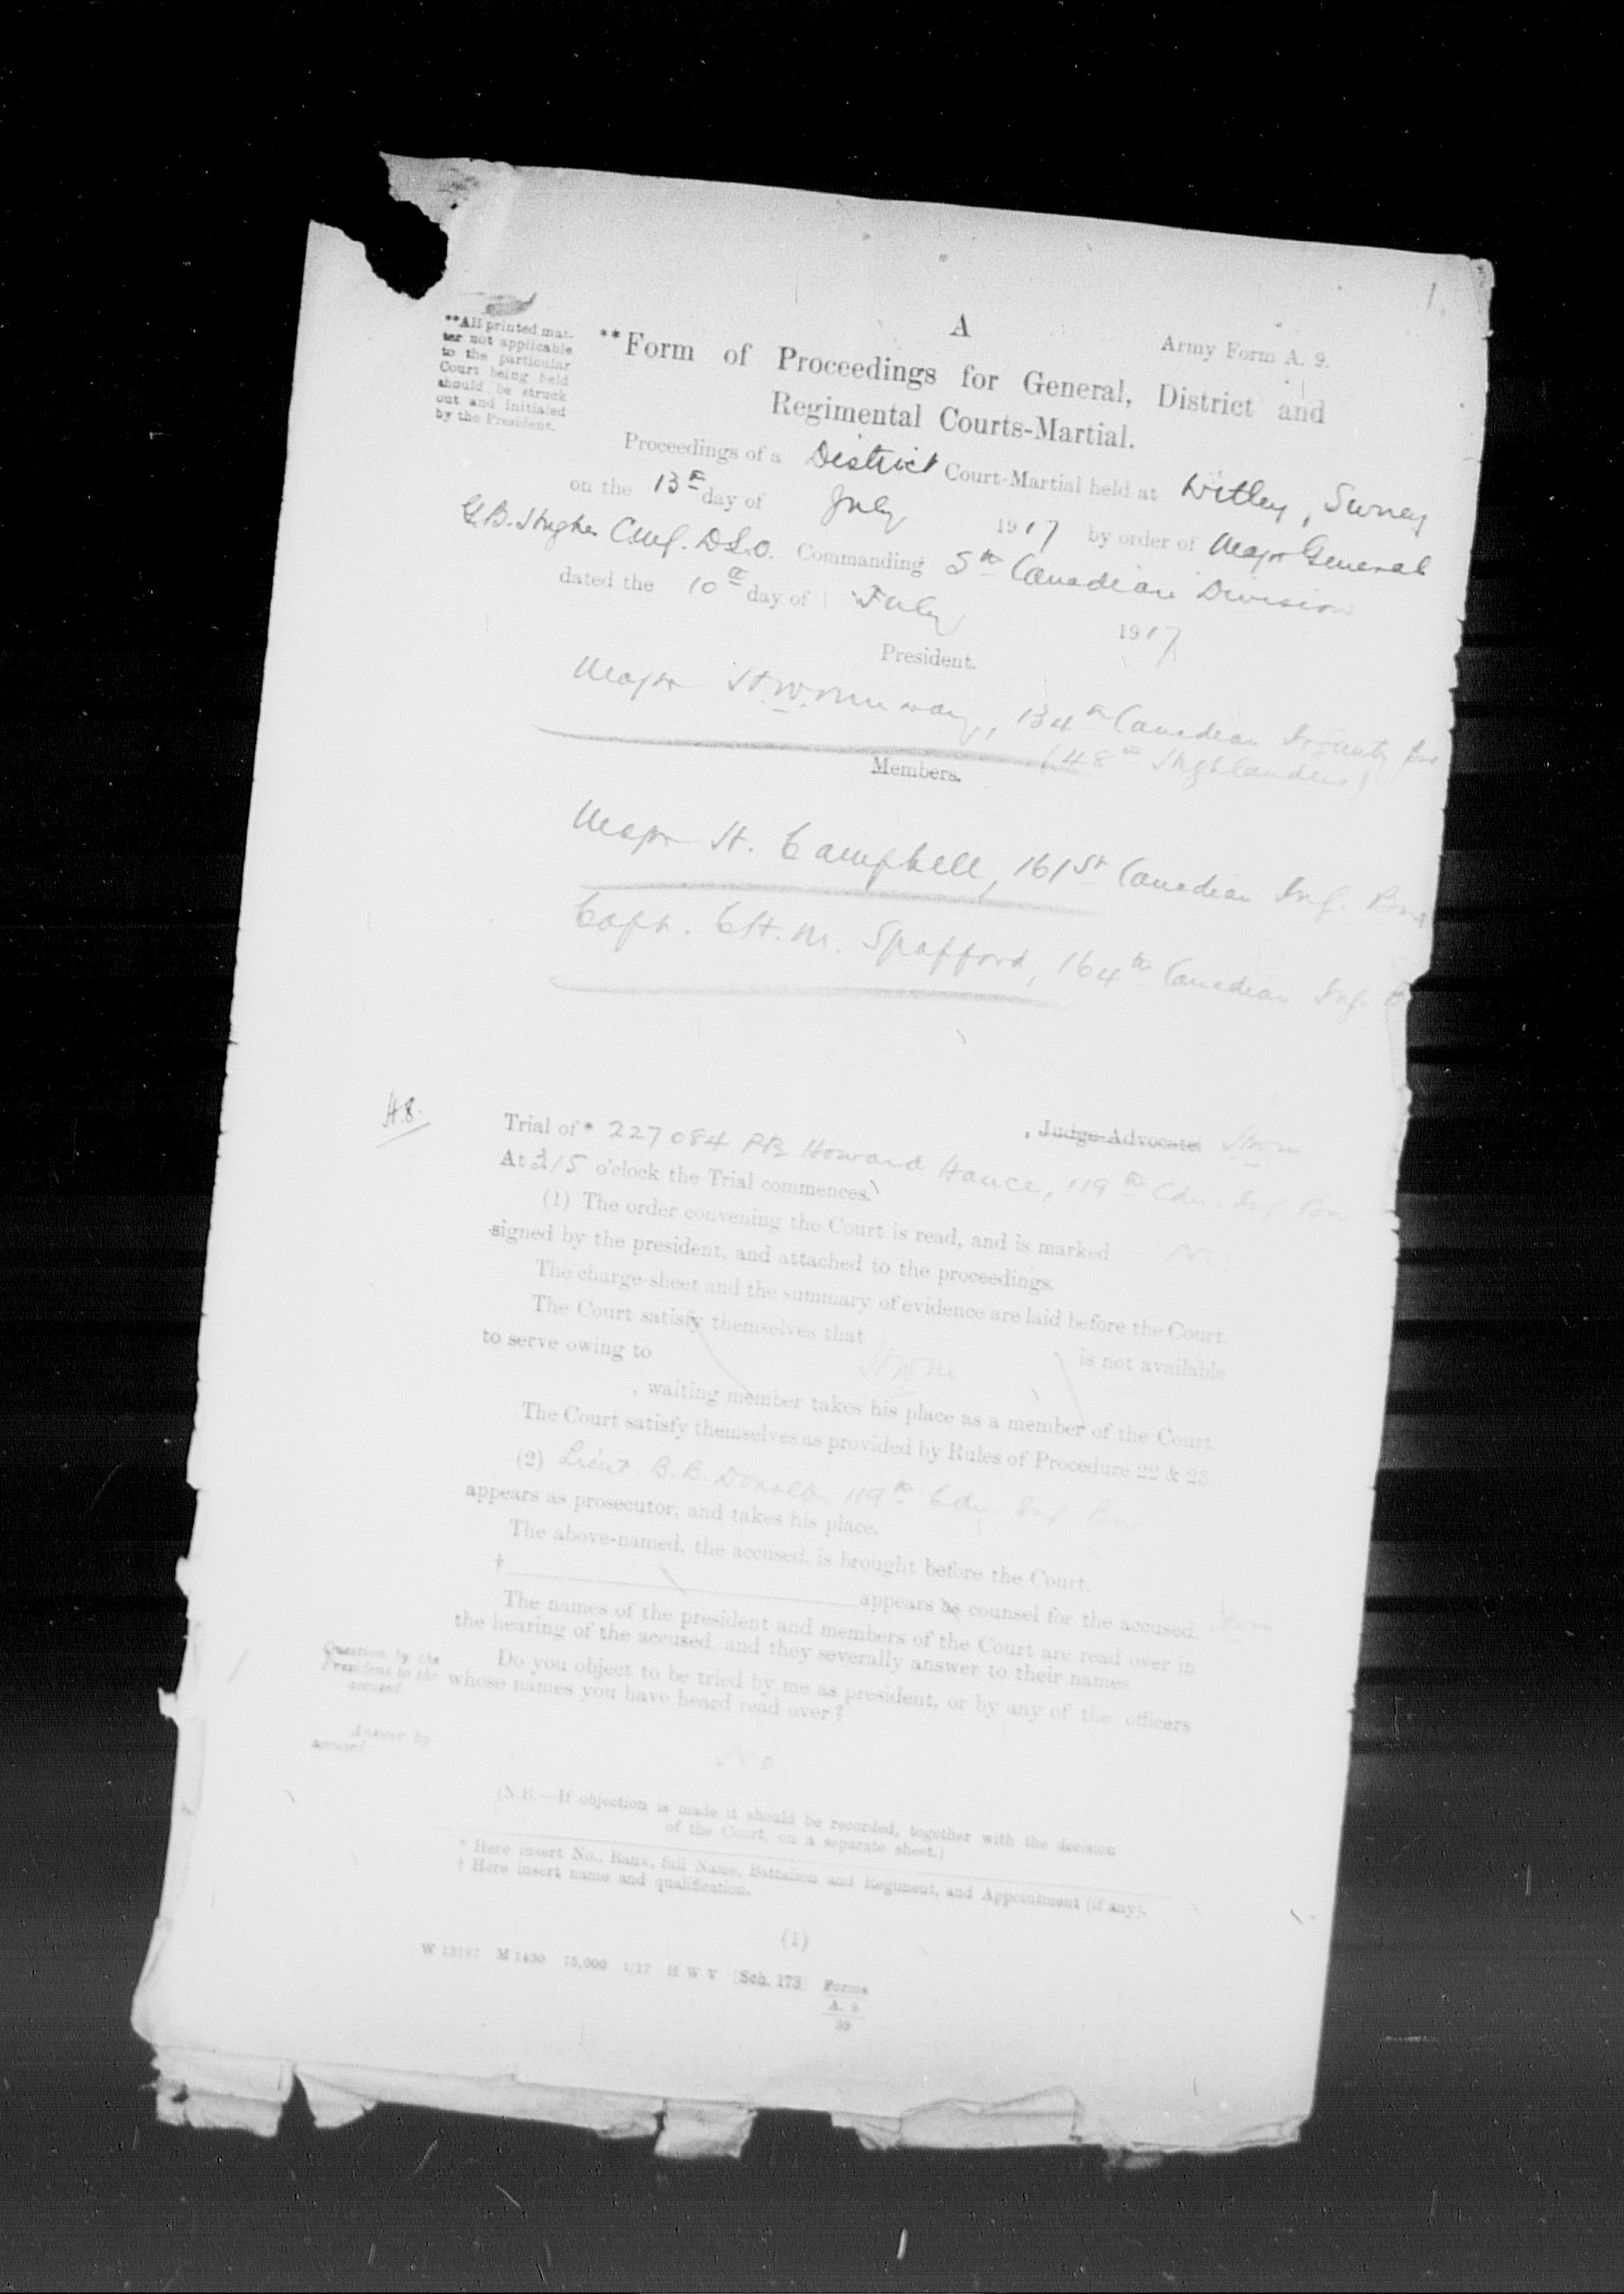 1.
A
Army Form A. 9.
**All printed mat-
ter not applicable
to the particular
Court being held
should be struck
out and initialed
by the President.
**Form of Proceedings for General, District and
Regimental Courts-Martial.
Proceedings of a District Court-Martial held at Witley, Surrey
on the 13th day of July 1917 by order of Major General
G.B. Hughes C.M.G. D.S.O. Commanding 5th Canadian Division
dated the 10th day of July 1917
President.
Major 134th Canadian Infantry Bn
(48th Highlanders)
Members.
Major H. Campbell, 161st Canadian Inf. Bn
Capt. C.H.M. Spafford, 164th Canadian Inf. B
H.8.
, Judge-Advocate.
Trial of * 227084 Pte Howard Hance, 119th Cdn. Inf. Bn
At 215 o'clock the Trial commences.
(1) The order convening the Court is read, and is marked
signed by the president, and attached to the proceedings.
The charge-sheet and the summary of evidence are laid before the Court.
The Court satisfy themselves that is not available
to serve owing to
, waiting member takes his place as a member of the Court.
The Court satisfy themselves as provided by Rules of Procedure 22 & 23
(2) Lieut. B.B. Donald, 119th Cdn. Inf Bn
appears as prosecutor, and takes his place.
The above-named, the accused, is brought before the Court.
† appears as counsel for the accused.
The names of the president and members of the Court are read over in
the hearing of the accused, and they severally answer to their names
Question by the
President to the
accused.
Do you object to be tried by me as president, or by any of the officers
whose names you have heard read over?
Answer by
accused.
No
(N.B.—If objection is made it should be recorded, together with the decision
of the Court, on a separate sheet.)
* Here insert No., Rank, full Name, Battalion and Regiment, and Appointment (if any).
† Here insert name and qualification.
(1)
W 13197 M 1430 75,000 1/17 H W V (Sch. 173) Forms
A. 9